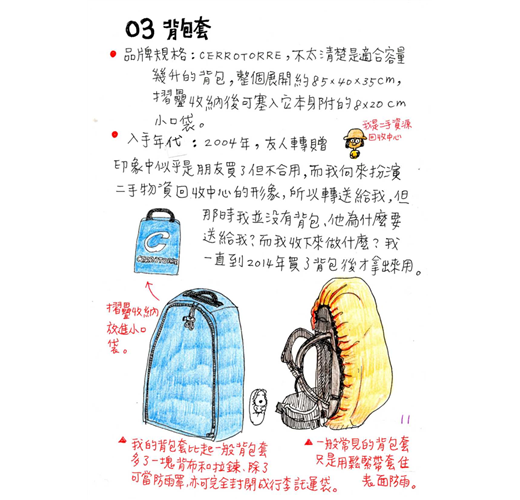 03 背包套
● 品牌規格：CERROTORRE，不太清楚是適合容量
幾升的背包，整個展開約85×40×35cm，
摺疊收納後可塞入它本身附的8×20cm
小口袋。
我是二手資源
回收中心
● 入手年代：2004年，友人轉贈
印象中似乎是朋友買了但不合用，而我向來扮演
二手物資回收中心的形象，所以轉送給我，但
那時我並沒有背包，他為什麼要
送給我？而我收下來做什麼？我
一直到2014年買了背包後才拿出來用。
C
CERROTORRE
摺疊收納
放進小口
袋。
▲我的背包套比起一般背包套
多了一塊背布和拉鍊，除了
可當防雨罩，亦可完全封閉成行李託運袋。
11
▲一般常見的背包套
只是用鬆緊帶套住
表面防雨。